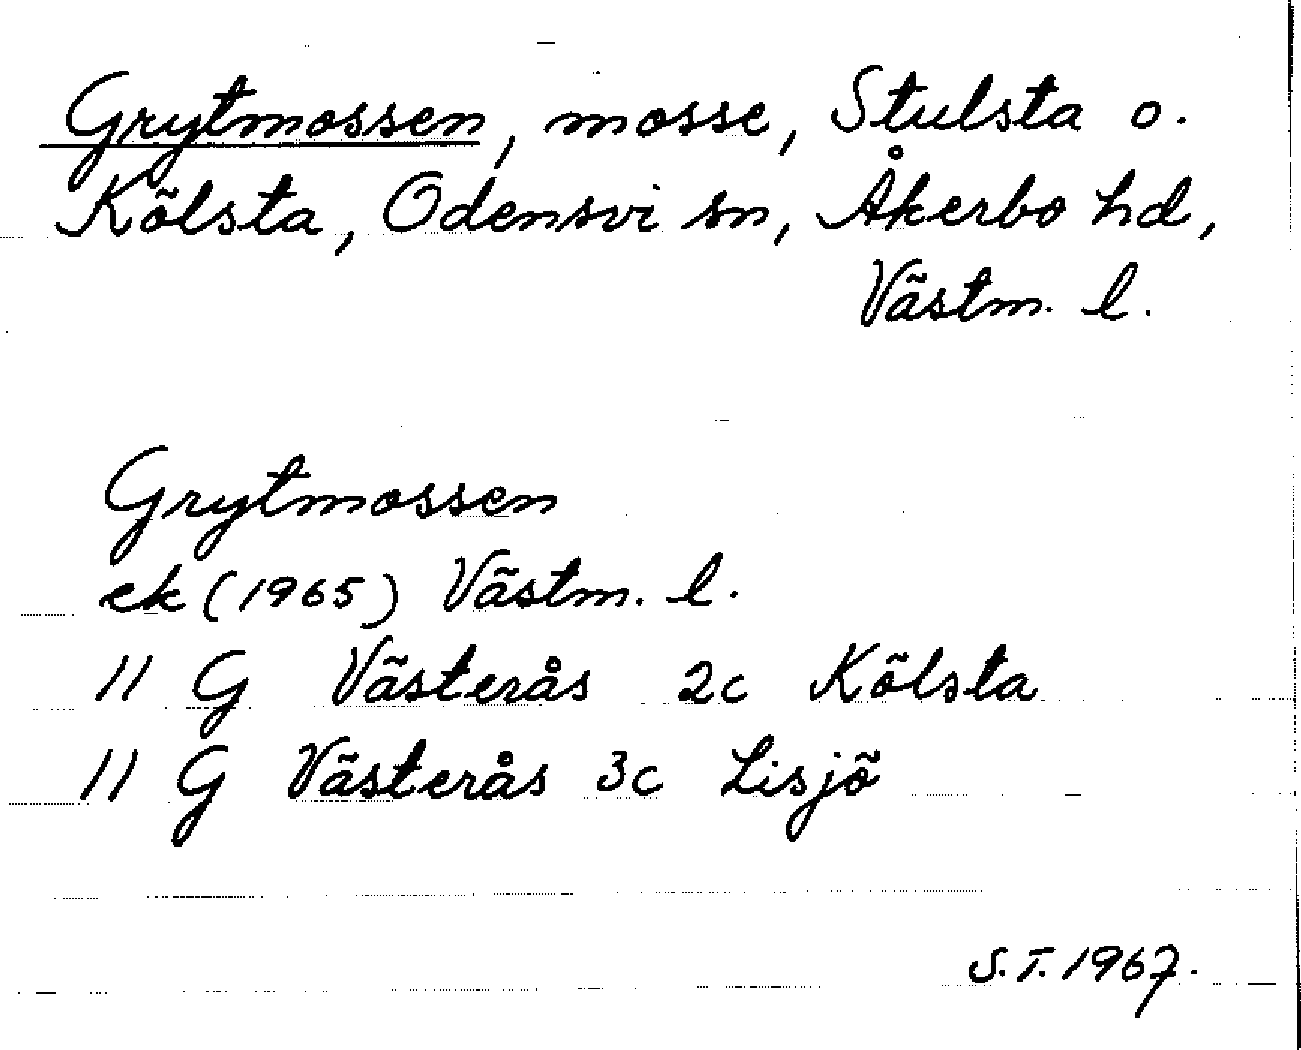 Grytmossen, mosse, Stulsta o.
Kölsta, Odensvi sn, Åkerbo hd,
Västm. l.
Grytmossen
ek (1965) Västm. l.
11 G Västerås 2c Kölsta
11 G Västerås 3c Lisjö
S.T. 1967.